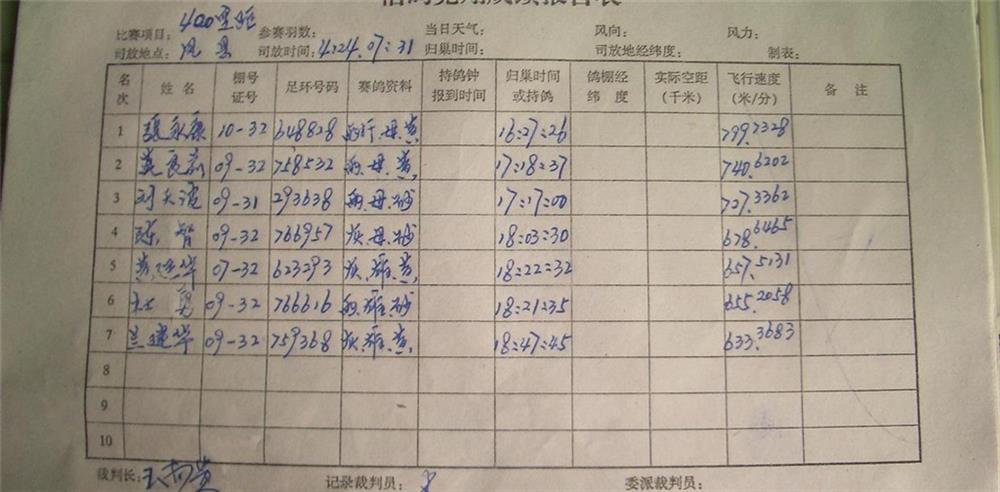 信鸽竞翔成绩报告表
比赛项目：400里距 参赛羽数： 当日天气： 风向： 风力：
司放地点：凤县 司放时间：4.24.07:31 归巢时间： 司放地经纬度： 制表：
名次 姓名 棚号证号 足环号码 赛鸽资料 持鸽钟报到时间 归巢时间或持鸽 鸽棚经纬度 实际空距（千米） 飞行速度（米/分） 备注
1 张永康 10-32 648828 母.黄 16:27:26 799.7328
2 09-32 758532 母.黄. 17:18:37 740.6202
3 刘天 09-31 293638 母.砂 17:17:00 727.3362
4 陈智 09-32 766957 灰.母.砂 18:03:30 678.6465
5 黄建华 07-32 623293 灰.雄.黄. 18:22:32 657.5131
6 杜勇 09-32 766616 雄.砂 18:21:35 655.2058
7 兰建华 09-32 759368 灰.雄.黄. 18:47:45 633.3683
8
9
10
裁判长：王尚贵 记录裁判员： 委派裁判员：